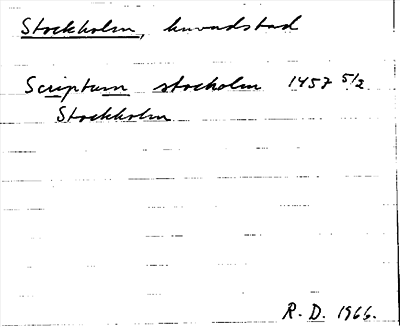 Stockholm, huvudstad
Scriptum stocholm 1457 5/2
Stockholm
R. D. 1966.